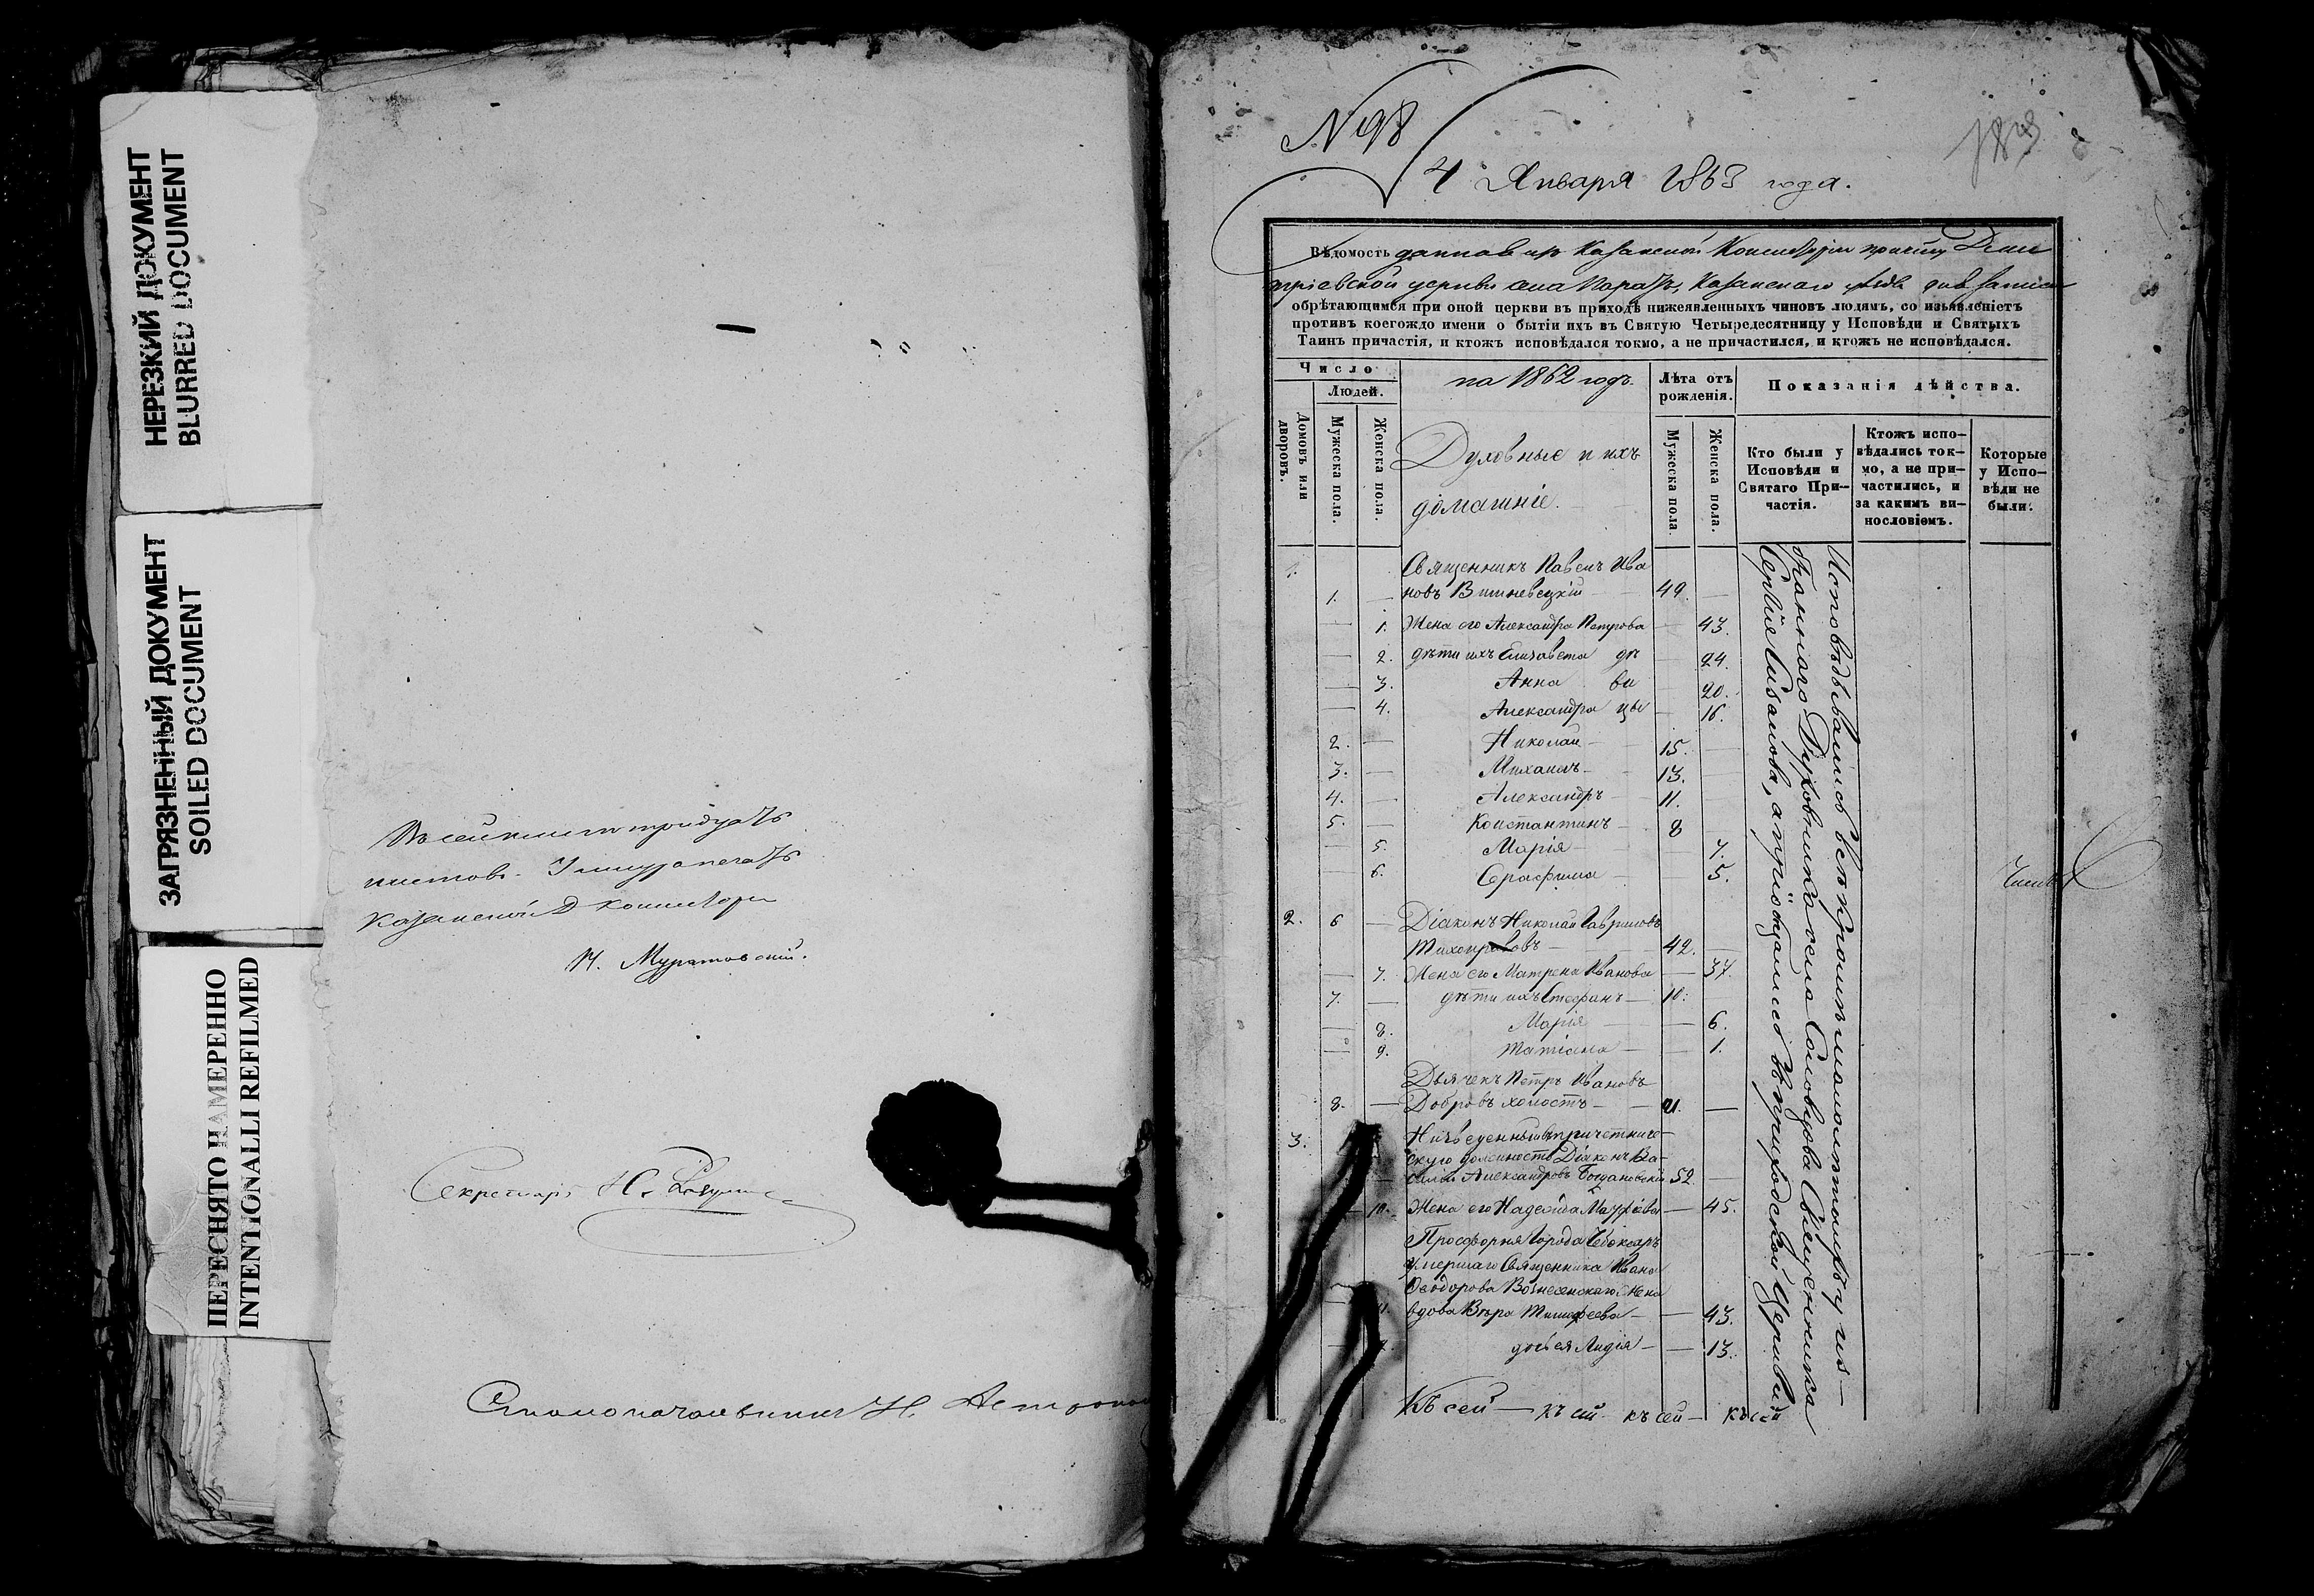 НЕРЕЗКИЙ ДОКУМЕНТ
BLURRED DOCUMENT
ЗАГРЯЗНЕННЫЙ ДОКУМЕНТ
SOILED DOCUMENT
ПЕРЕСНЯТО НАМЕРЕННО
INTENTIONALLI REFILMED
Въ сей книге тридцать
листовъ
Казанской Д Консисторіи
Муратовскій.
Секретарь Н.
Столоначальникъ Н.
№ 98
4 Января 1863 года.
183
Вѣдомость данная изъ Казанской Консисторіи причту Дими
тріевской церкви села Казанскаго уѣзда для записи
обрѣтающимся при оной церкви въ приходѣ нижеявленныхъ чиновъ людямъ, со изъявленіетъ
противъ коегождо имени о бытіи ихъ въ Святую Четыредесятницу у Исповѣди и Святыхъ
Таинъ причастія, и ктожъ исповѣдался токмо, а не причастился, и ктожъ не исповѣдался.
Число
Людей.
Домовъ или дворовъ.
Мужеска пола.
Женска пола.
на 1862 годъ.
Духовные и ихъ
домашніе.
Лѣта отъ
рожденія.
Мужеска пола
Женска пола.
Показанія дѣйства.
Кто были у
Исповѣди и
Святаго При-
частія.
Ктожъ испо-
вѣдались ток-
мо, а не при-
частились, и
за какимъ ви-
нословіемъ.
Которые
у Испо-
вѣди не
были.
1. Священникъ Павелъ Ива
1. — новъ Вишневскій — 49. —
— 1. Жена его Александра Петрова — 43.
— 2. дѣти ихъ Елизавета дѣ — 24.
— 3. Анна ви — 20.
— 4. Александра цы — 16.
2. — Николай — 15. —
3. — Михаилъ — 13. —
4. — Александръ — 11. —
5. — Константинъ — 8
— 5. Марія — 7.
— 6. Серафима — 5.
2. 6 — Діаконъ Николай Гавриловъ
42. —
— 7. Жена его Матрена Иванова — 37.
7. — дѣти ихъ Стефанъ — 10.
— 8. Марія — 6.
— 9. Татіана — 1.
Дьячекъ Петръ Ивановъ
8. — Добровъ холостъ — 21. —
3. Низведенный въ причетниче-
скую должность Діаконъ Ва-
— силій Александровъ Богдановскій 52. —
— 10. Жена его Надежда — 45.
Просфорня города Чебоксаръ
умершаго Священника Ивана
Феодорова Вознесенскаго жена
вдова Вѣра Тимофеева — 43.
— дочь ея Лидія — 13.
Къ сей — къ сей — къ сей — къ сей
Исповѣдывались всѣ кромѣ малолѣтнихъ у из-
браннаго Духовника села Священника
Сергія а пріобщались въ приходской церкви